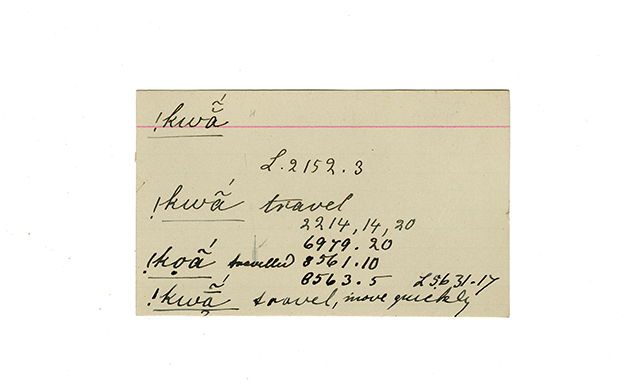 !kwã́
L.2152.3
!kwã́ travel
2214, 14, 20
6979.20
!kọã́ travelled 8561.10
8563.5 L5631-17
!kwã̄́ travel, move quickly